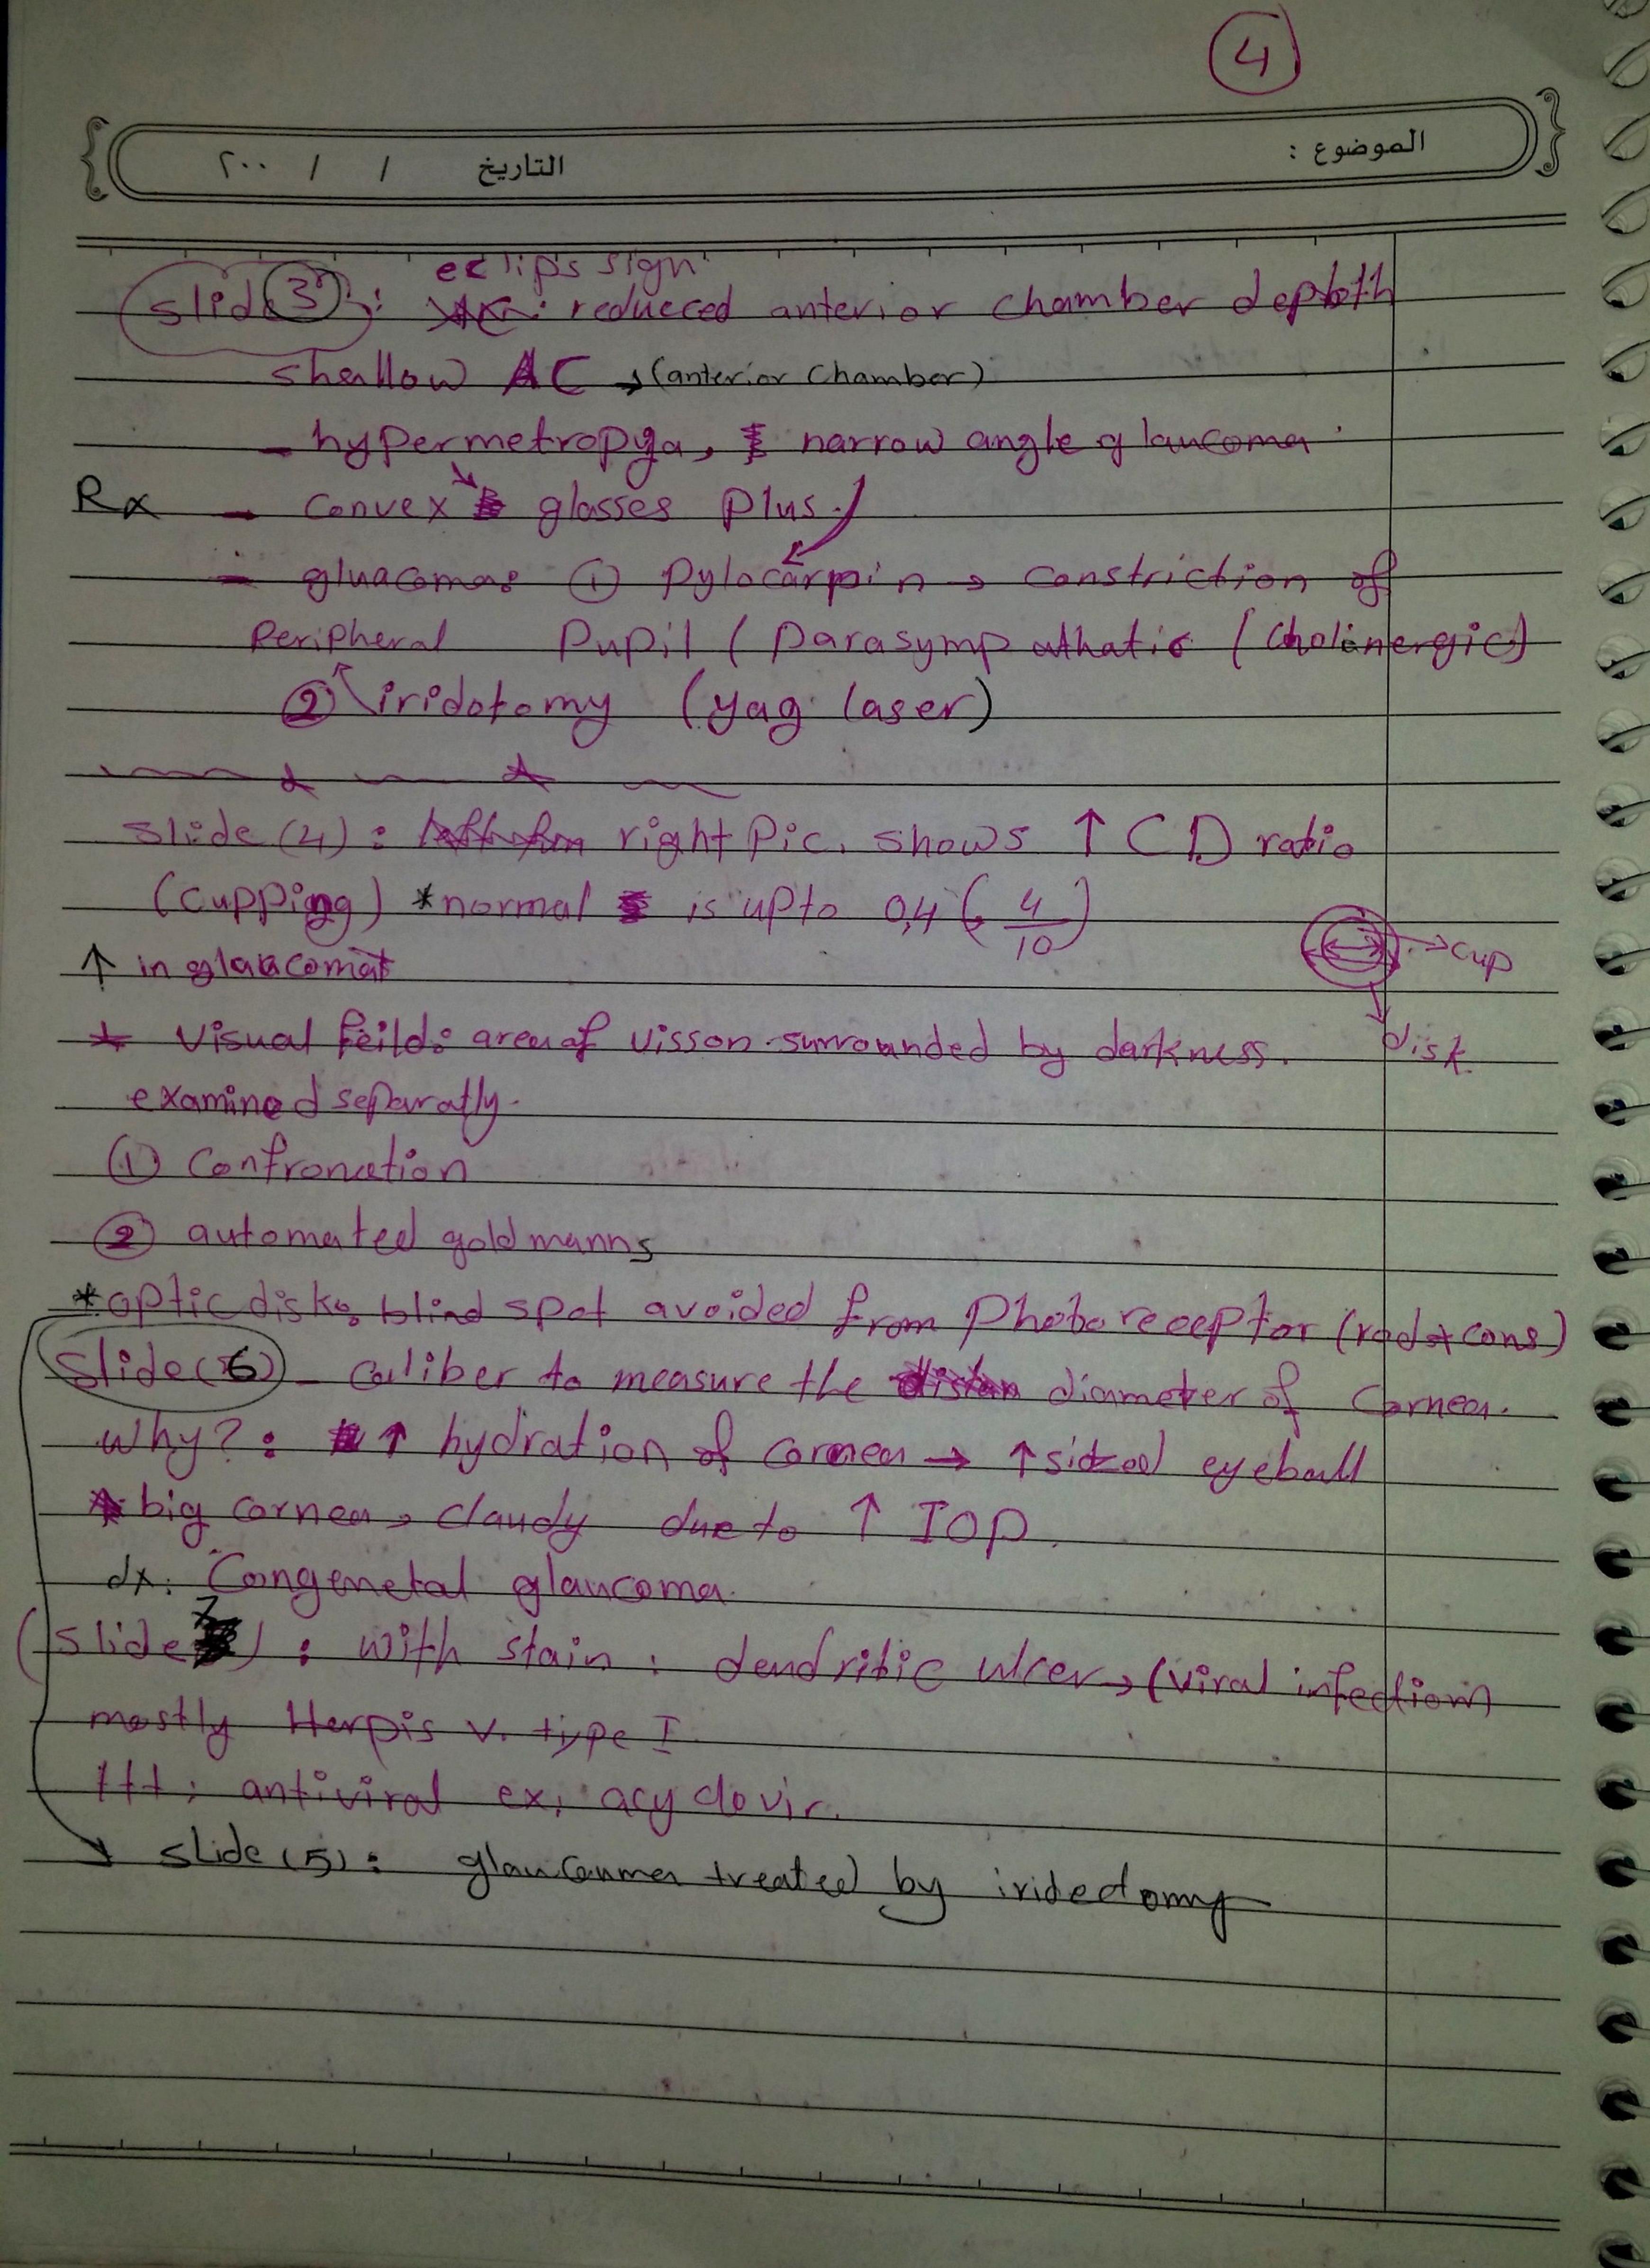 4
الموضوع :
التاريخ / / ٢٠٠
eclips sign
slide(3): reduced anterior chamber depth
shallow AC → (anterior chamber)
- hypermetropya, narrow angle glaucoma
Rx - convex glasses plus.
- gluacoma: ① pylocarpin → constriction of
Pupil (parasympathatic (cholinergic)
Peripheral
② iridotomy (yag laser)
slide (4): right pic. shows ↑ CD ratio
(cupping) *normal is upto 0,4 (4/10)
↑ in glaucoma
cup
disk
* visual feild: area of visson surrounded by darkness.
examined separatly.
① Confronation
② automated goldmanns
*optic disk: blind spot avoided from Photoreceptor (rod+cons)
slide(6) - caliber to measure the diameter of Cornea.
why?: ↑ hydration of cornea → ↑ sized eyeball
* big cornea, cloudy due to ↑ IOP.
dx: Congenetal glaucoma.
(slide 7): with stain: dendritic ulcer → (viral infection)
mostly Herpis v. type I
ttt: antiviral ex, acyclovir.
slide(5): glaucouma treated by iridectomy